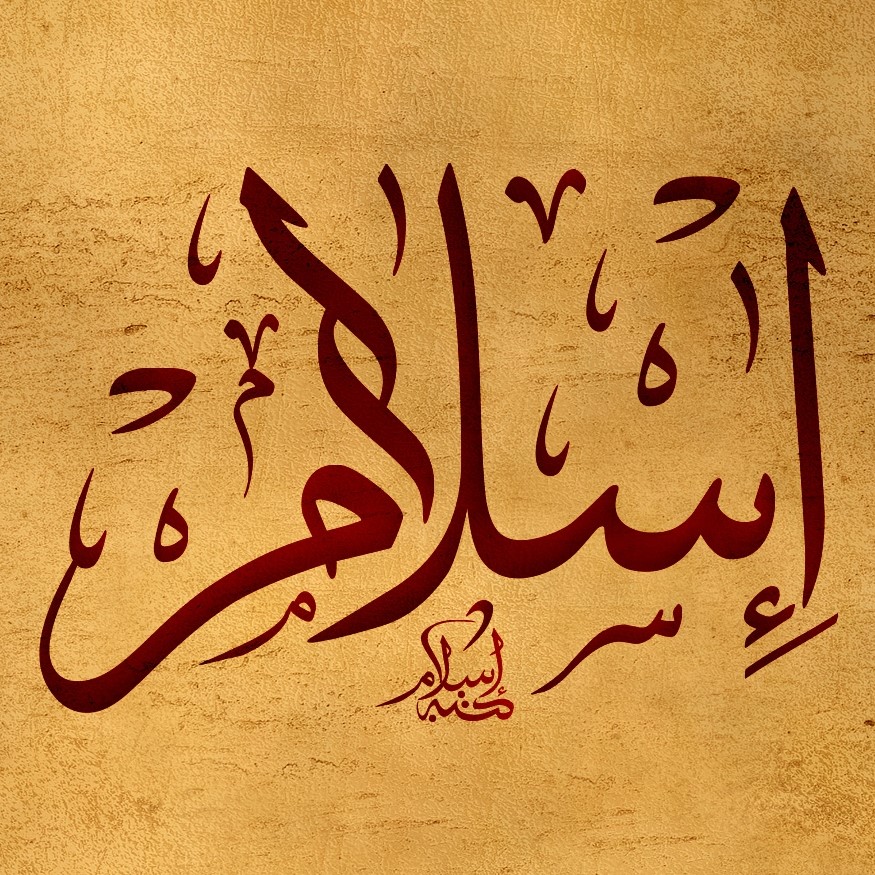 إِسلام
كتبه إسلام